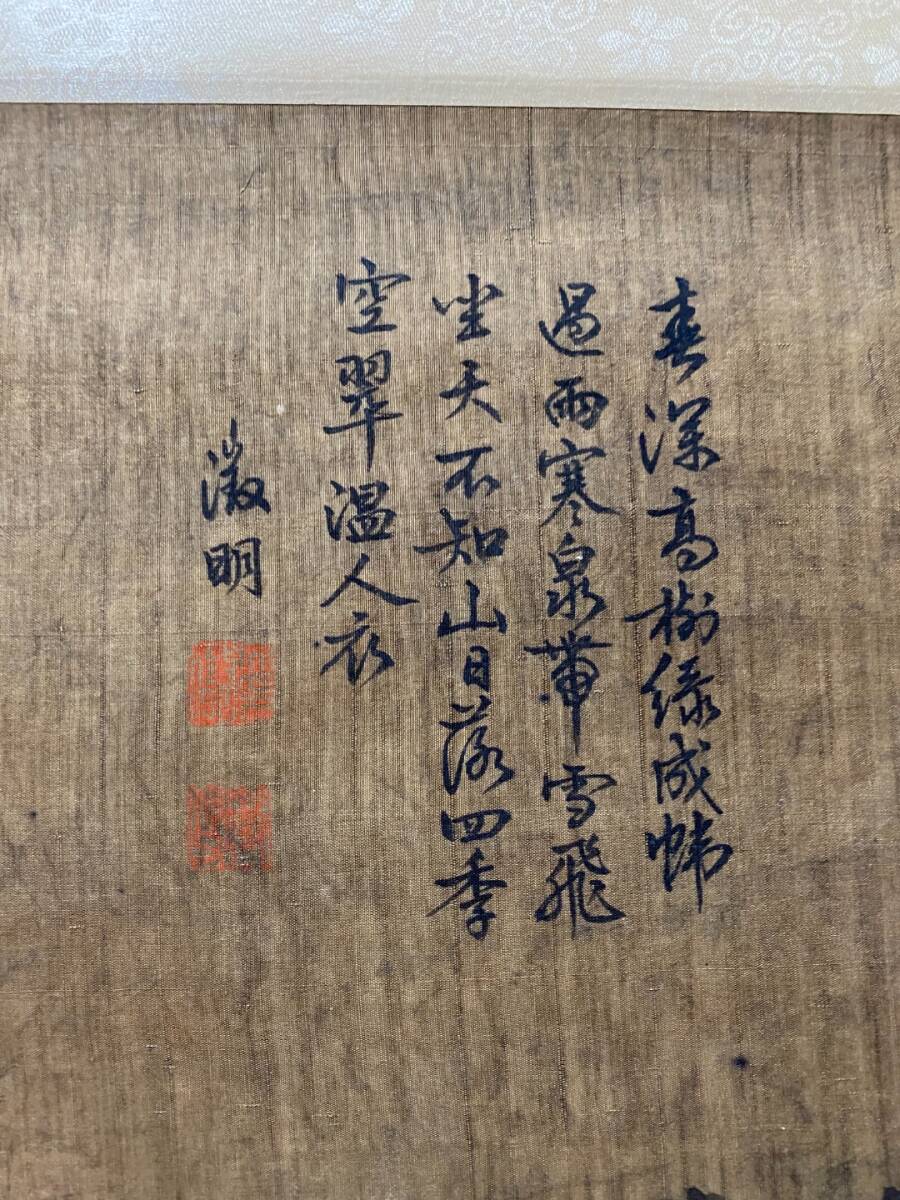 春深高樹緑成幃
過雨寒泉帯雪飛
坐天不知山日落四季
空翠温人衣
徴明